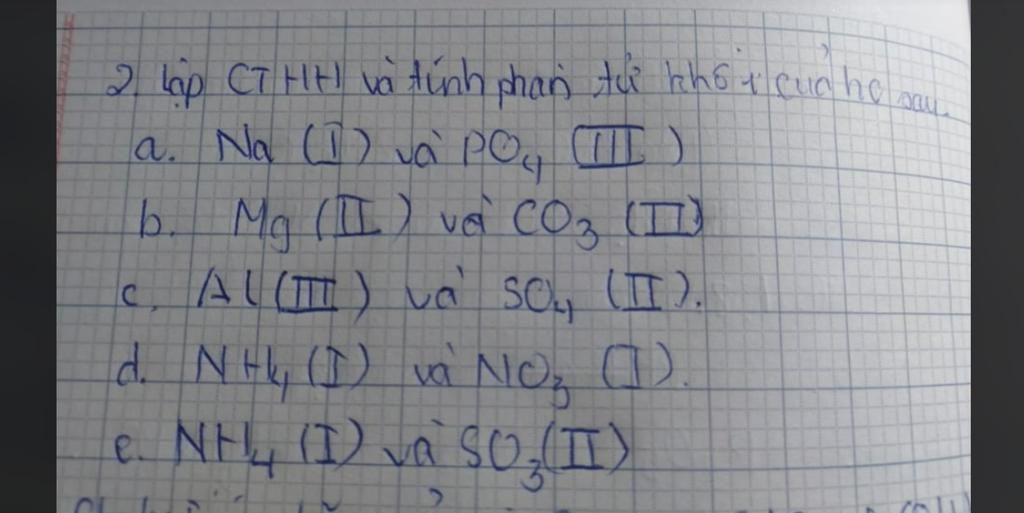 2, lập CTHH và tính phân tử khối của hc sau
a. Na (I) và PO₄ (III)
b. Mg (II) và CO₃ (II)
c. Al (III) và SO₄ (II).
d. NH₄ (I) và NO₃ (I).
e. NH₄ (I) và SO₃ (II)